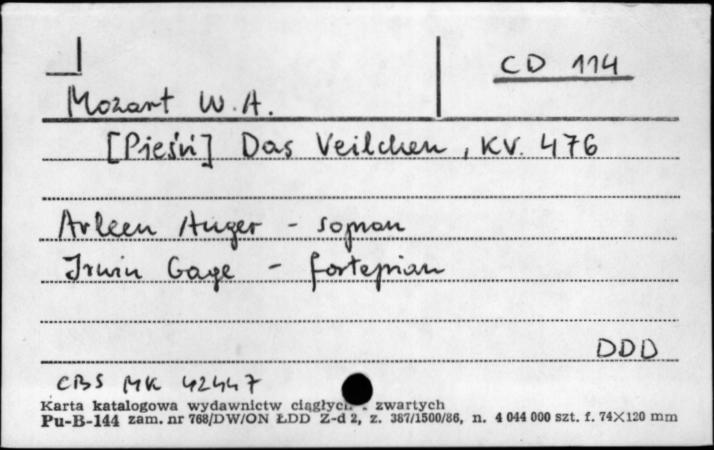 CD 114
Mozart W. A.
[Pieśń] Das Veilchen, KV. 476
Arleen Auger - sopran
Irwin Gage - fortepian
DDD
CBS MK 42447
Karta katalogowa wydawnictw ciągłych i zwartych
Pu-B-144 zam. nr 768/DW/ON ŁDD Z-d 2, z. 387/1500/86, n. 4 044 000 szt. f. 74×120 mm